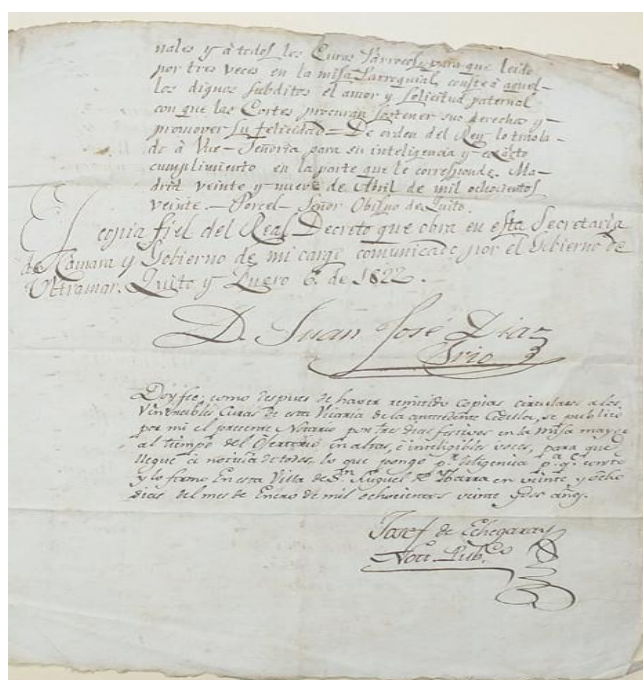 nales y à todos los Curas Parrocos, para que leido
por tres veces en la misa Parroquial, conste à aquel-
los dignos Subditos el amor y Solicitud paternal
con que las Cortes procuran sostener sus derechos y
promover su felicidad = De orden del Rey lo trasla-
do à Vue- Señoria para su inteligencia y exacto
cumplimiento en la parte que le corresponde. Ma-
drid veinte y nueve de Abril de mil ochocientos
veinte. - Porcel - Señor Obispo de Quito.
Es copia fiel del Real Decreto que obra en esta Secretaria
de Camara y Gobierno de mi cargo comunicado por el Gobierno de
Ultramar. Quito y Enero 6. de 1822.
D. Juan José Diaz
Srio
Doy fee, como despues de haver remitido copias circulares a los
Venerables Curas de esta Vicaria de la antecedente Cedula, se publicó
por mi el presente Notario por tres dias festivos en la misa mayor
al tiempo del Ofertorio en altas, è inteligibles voces, para que
llegue à noticia de todos, lo que pongo p.r diligencia p.a q.e conste
y lo firmo En esta Villa de S.n Miguel de Ibarra en veinte y ocho
dias del mes de Enero de mil ochocientos veinte y dos años.
Josef de Echegaray
Not.o Pub.co